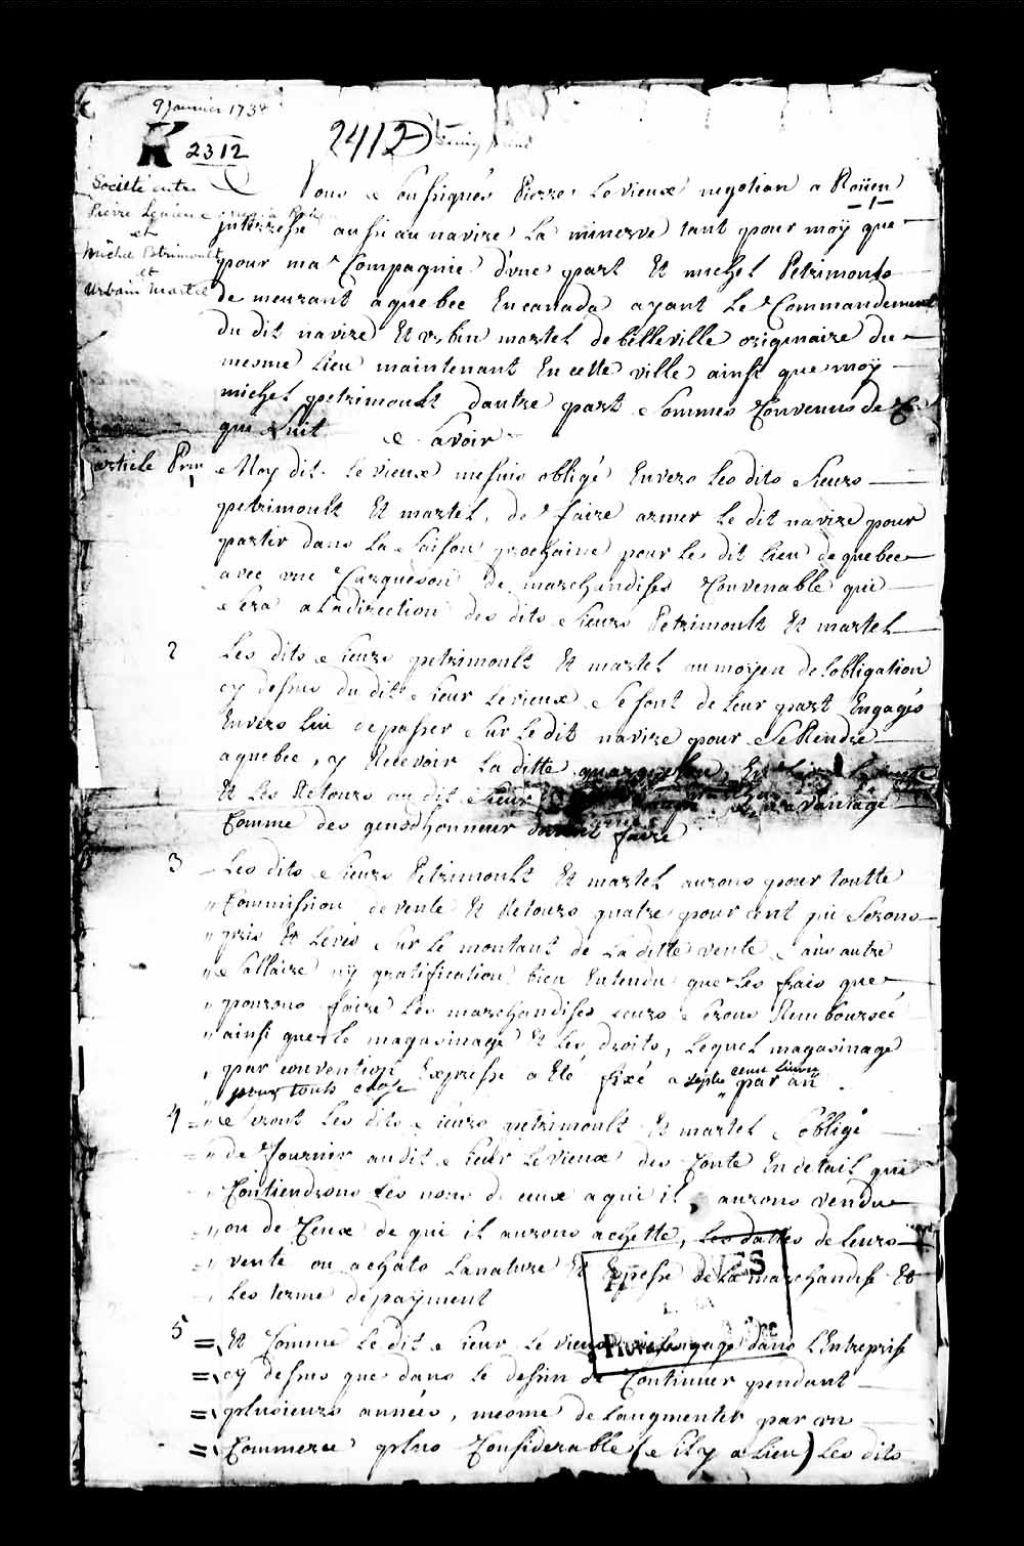 9 janvier 1734
K 2312
2412
Société entre
Pierre Levieux
et
Michel Petrimoult
et
Urbain Martel
Nous Soussignés Pierre Levieux negotian a Roüen
jnteressé aussi au navire La minerve tant pour moÿ que
pour ma Compagnie d'vne part Et michel Petrimoulx
de meurant a quebec En canada ayant Le Commandement
du dit navire Et vrbin martel de belleville originaire du
mesme Lieu maintenant En cette ville ainsi que moÿ
michel petrimoult dautre part Sommes Convenus de Ce
qui Suit Savoir
article Prem
1
Moy dit Levieux mesuis obligé Envers Les dits Sieurs
petrimoult Et martel, de faire armer Le dit navire pour
partir dans La Saison prochaine pour Le dit Lieu de quebec
avec vne Carguéson de marchandises Convenable qui
Sera a La direction des dits Sieurs Petrimoult Et martel
2 Les dits Sieurs petrimoult Et martel aumoyen de Lobligation
cy dessus du dit Sieur Levieux Se sont de Leur part Engagés
Envers Lui de passer Sur Le dit navire pour Se Rendre
a quebec, y Recevoir La ditte
Et Les Retours au dit Sieur avantage
Comme des gens dhonneur doivent faire
3 Les dits Sieurs Petrimoult Et martel aurons pour toutte
Commission de vente Et Retours quatre pour cent qui Serons
pris Et Levés Sur Le montant de La ditte vente Sans autre
Sallaire nÿ gratification bien Entendu que Les frais que
pourons faire Les marchandises Leurs Serons Remboursée
ainsi que Le magasinage Et Les droits, Lequel magasinage
par convention Expresse a Eté fixé a Septe cent Livres par an
pour touts chose
4 Seront Les dits Sieurs petrimoult Et martel obligé
de fournir audit Sieur Levieux des Conte En detail qui
Contiendrons Les noms de ceux a qui il aurons vendu
ou de Ceux de qui il aurons achette, Les dattes de Leurs
vente ou achats La nature Et Espesse de La marchandise Et
Les terme de payment
5 Et Comme Le dit Sieur Levieux Sengage dans L'Entreprise
cy dessus que dans Le dessin de Continuer pendant
plusieurs années, mesme de Laugmenter par vn
Commerce plus Considerable (Sil y a Lieu) Les dits